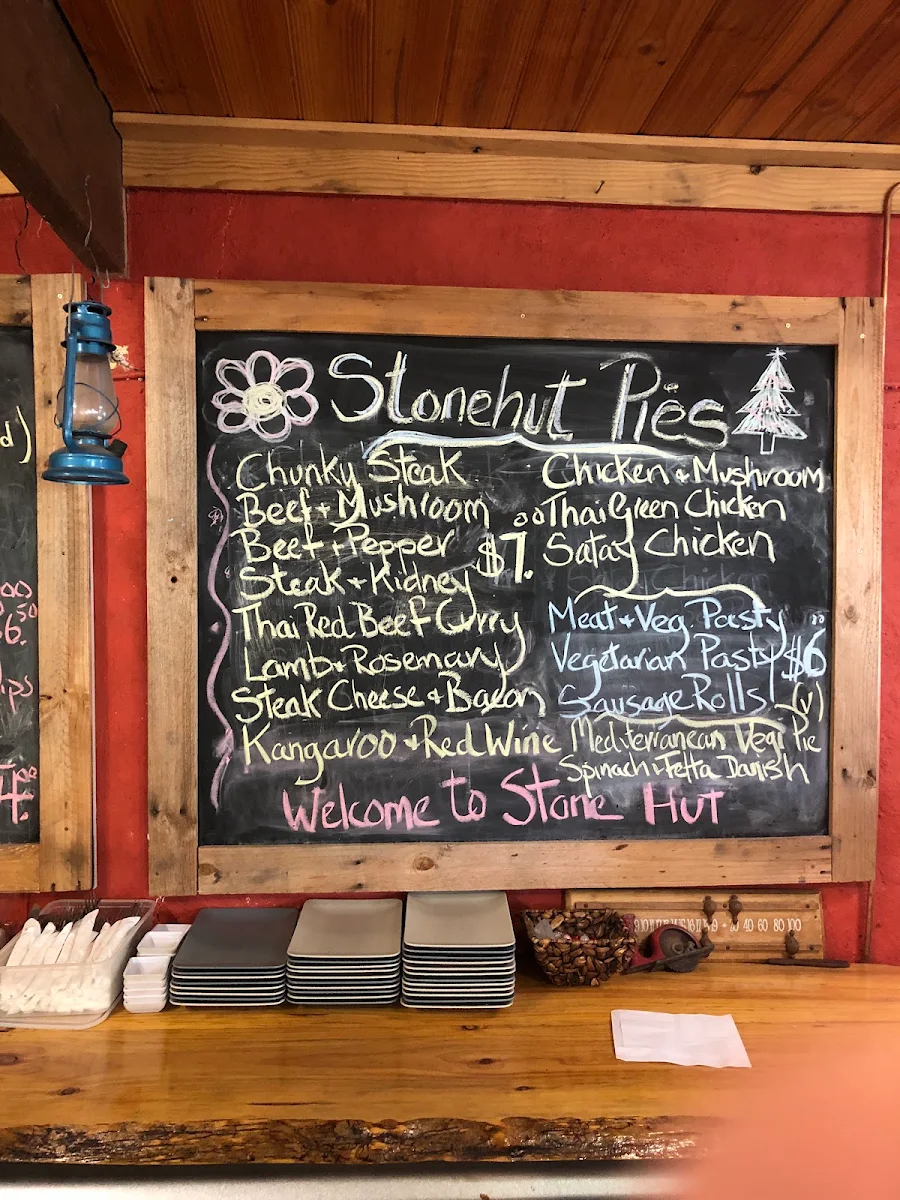 Stonehut Pies
Chunky Steak
Beef + Mushroom
Beef + Pepper
Steak + Kidney
Thai Red Beef Curry
Lamb + Rosemary
Steak Cheese + Bacon
Kangaroo + Red Wine
$7.
Chicken + Mushroom
Thai Green Chicken
Satay Chicken
Meat + Veg. Pasty
Vegetarian Pasty
Sausage Rolls
$6
(v)
Mediterranean Vegi Pie
Spinach + Fetta Danish
Welcome to Stone Hut
d)
6.50
ips
4.
20 40 60 80 100